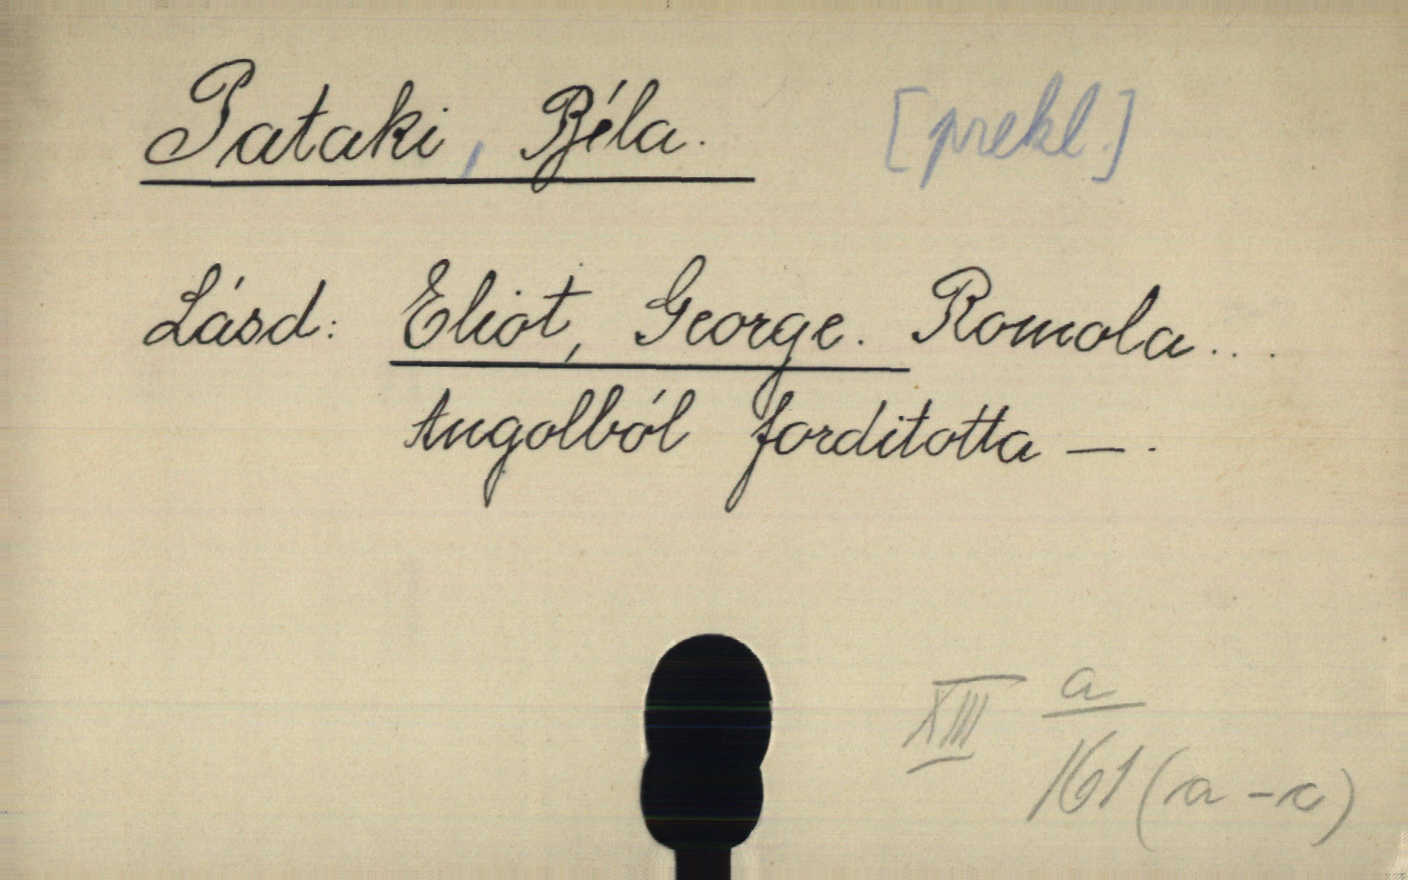 Pataki, Béla. [prekl.]
Lásd: Eliot, George. Romola...
Angolból fordította —.
XIII a
161 (a-c)